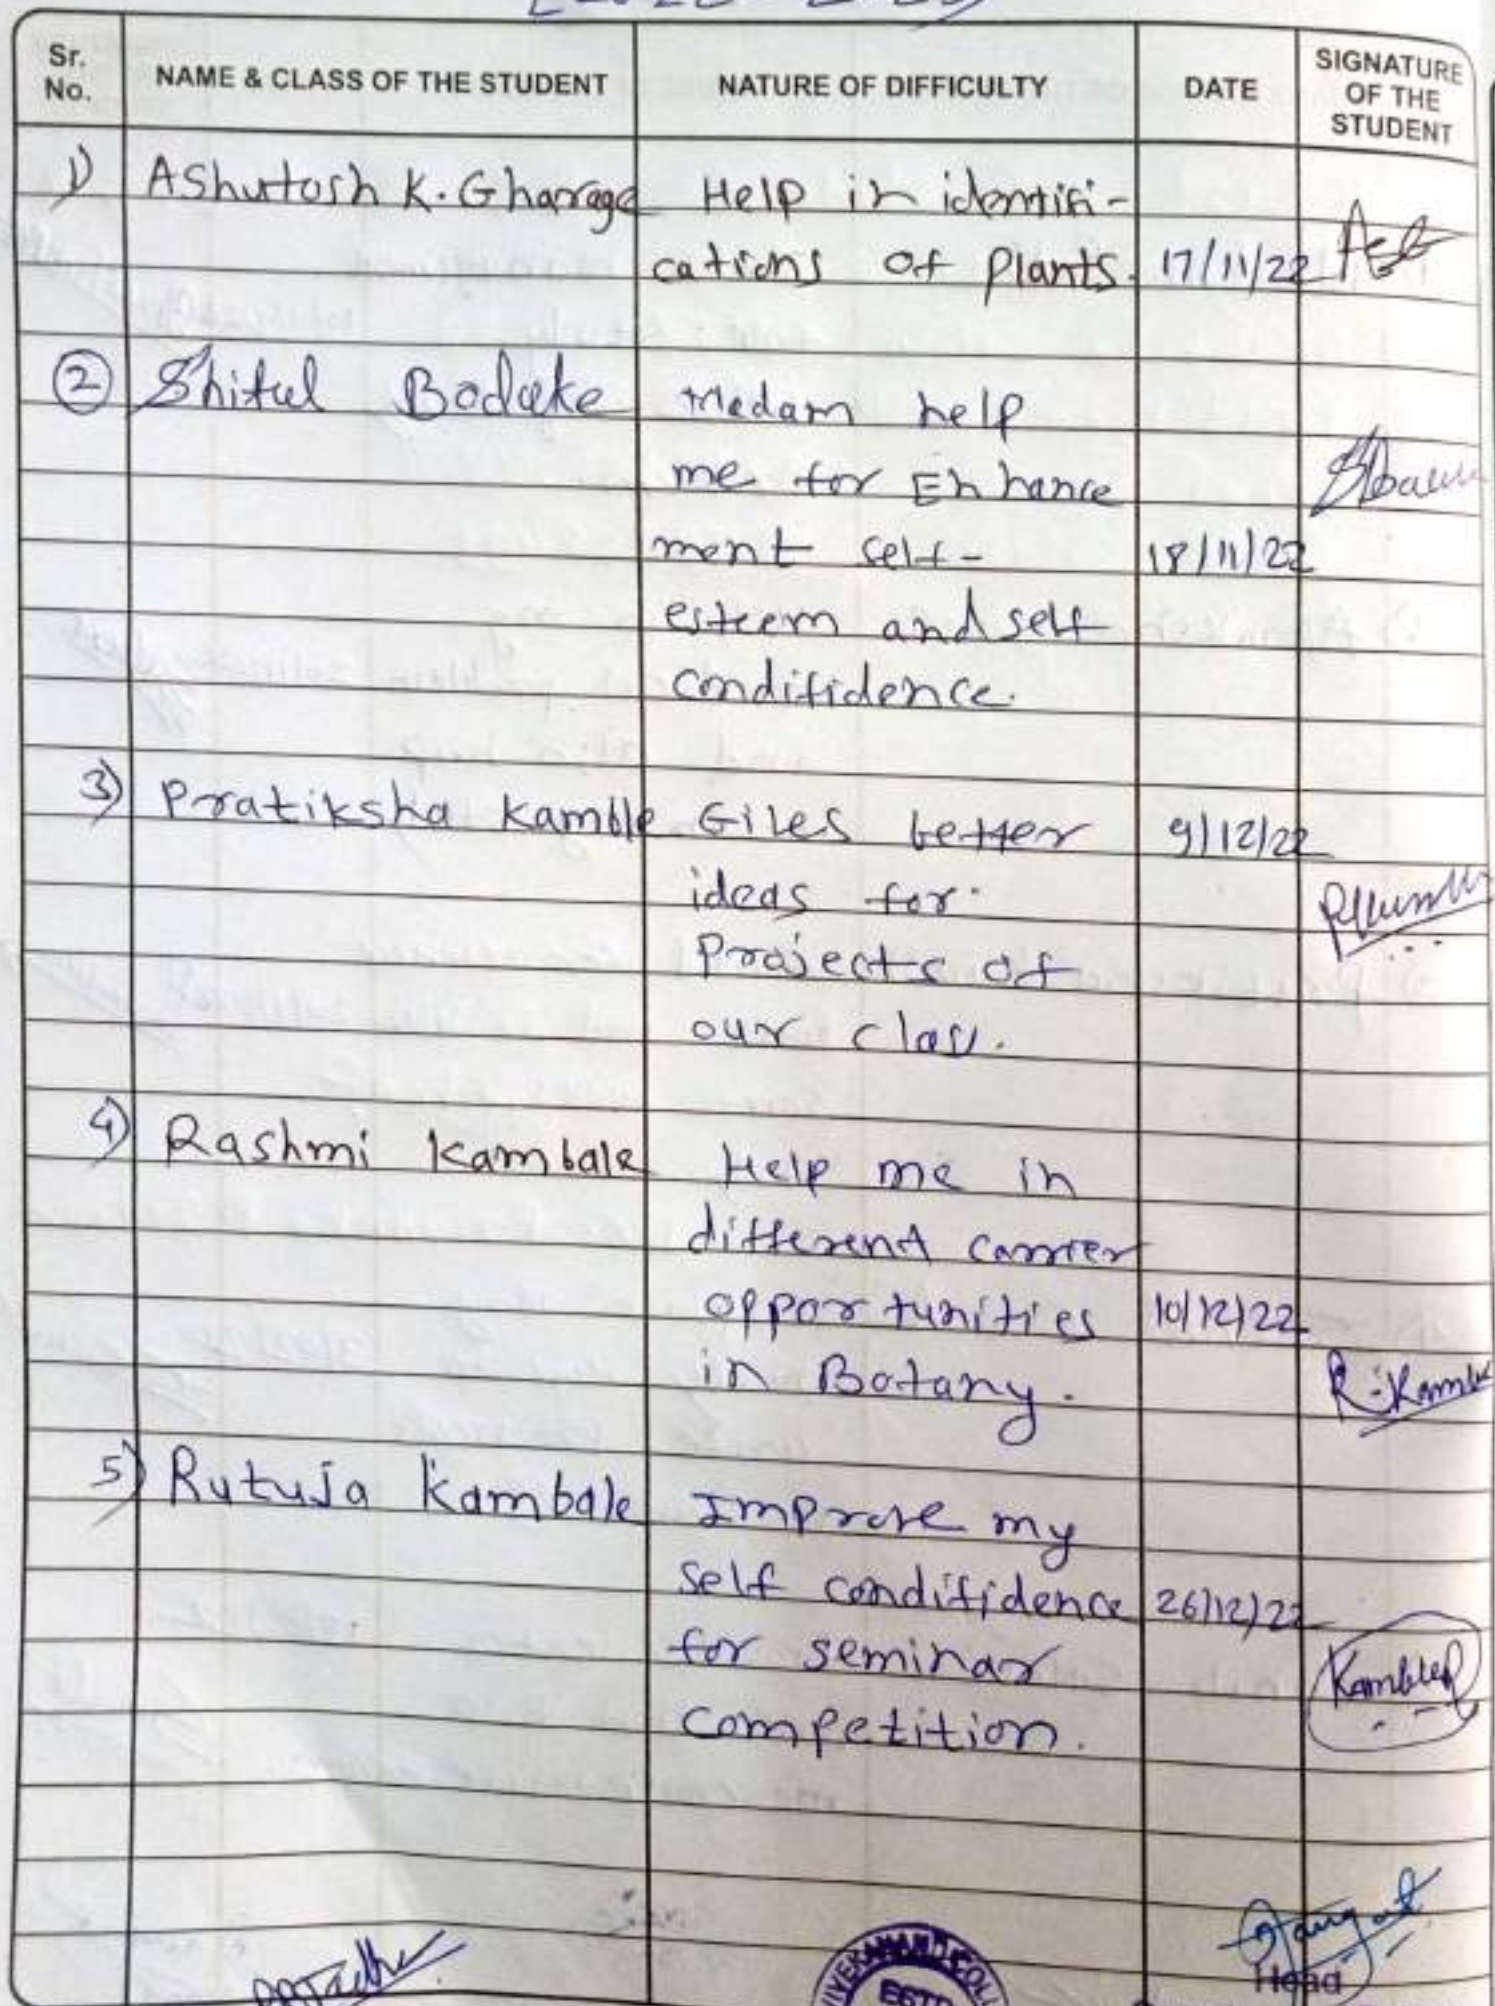 Sr. No. NAME & CLASS OF THE STUDENT NATURE OF DIFFICULTY DATE SIGNATURE OF THE STUDENT
1) Ashutosh K. Gharage Help in identifi-
cations of plants. 17/11/22
2 Shital Bodake Madam help
me for Enhance
ment self- 18/11/22
esteem and self
condifidence.
3) Pratiksha Kamble Gives better 9/12/22
ideas for
Projects of
our class.
4) Rashmi Kambale Help me in
different carrier
opportunities 10/12/22
in Botany. R. Kamble
5) Rutuja Kambale Improve my
self condifidence 26/12/22
for seminar
competition.
VIVEKANAND COLL
ESTD
Head